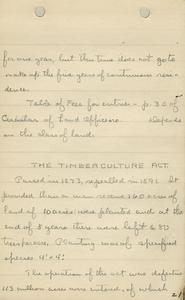 for one year, but this time does not go to
make up the five years of continuous resi-
dence.
Table of Fees for entries - p. 305
Circular of Land Officers. Depends
on the class of land.
THE TIMBERCULTURE ACT.
Passed in 1873, repealled in 1891. It
provided that a man receive 160 acres of
land if 10 acres were planted and at the
end of 8 years there were left 675
trees per acre. Planting was of specified
species 4'x4'.
The operation of the act was defective
43 million acres were entered, of which